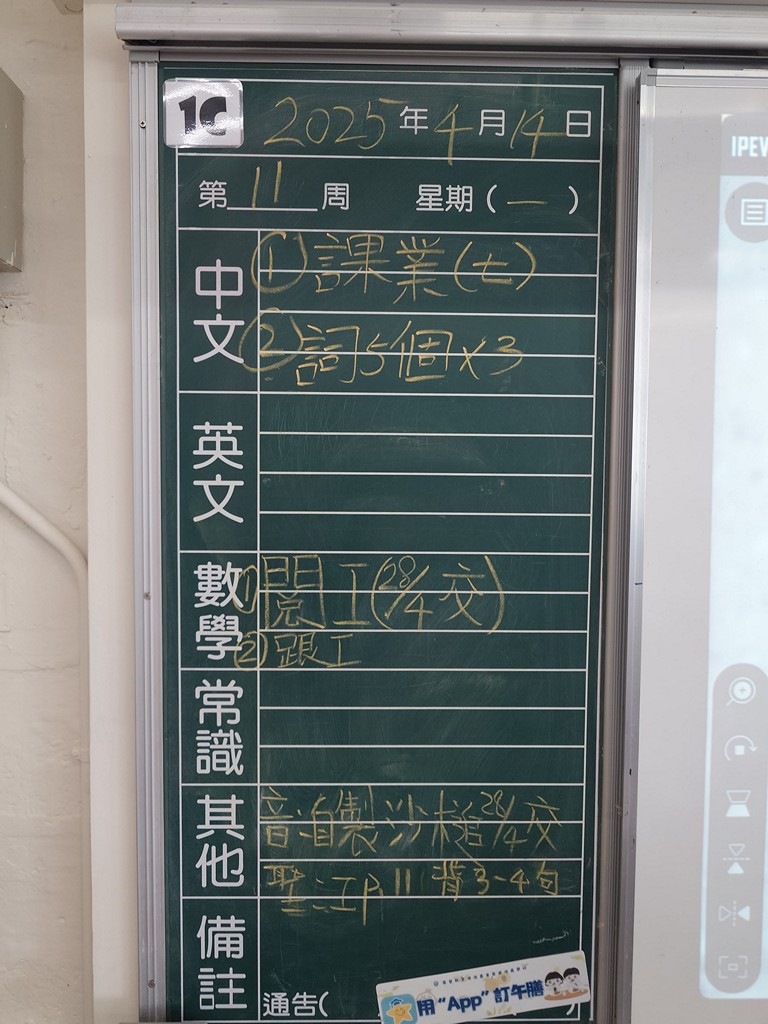 1C
2025年4月14日
第11周 星期(一)
中文
①課業(七)
②詞5個×3
英文
數學
①閱工(28/4交)
②跟工
常識
其他
音:自製沙槌28/4交
聖:工P.11 背3-4句
備註
通告(
)
用“App”訂午膳
IPEV